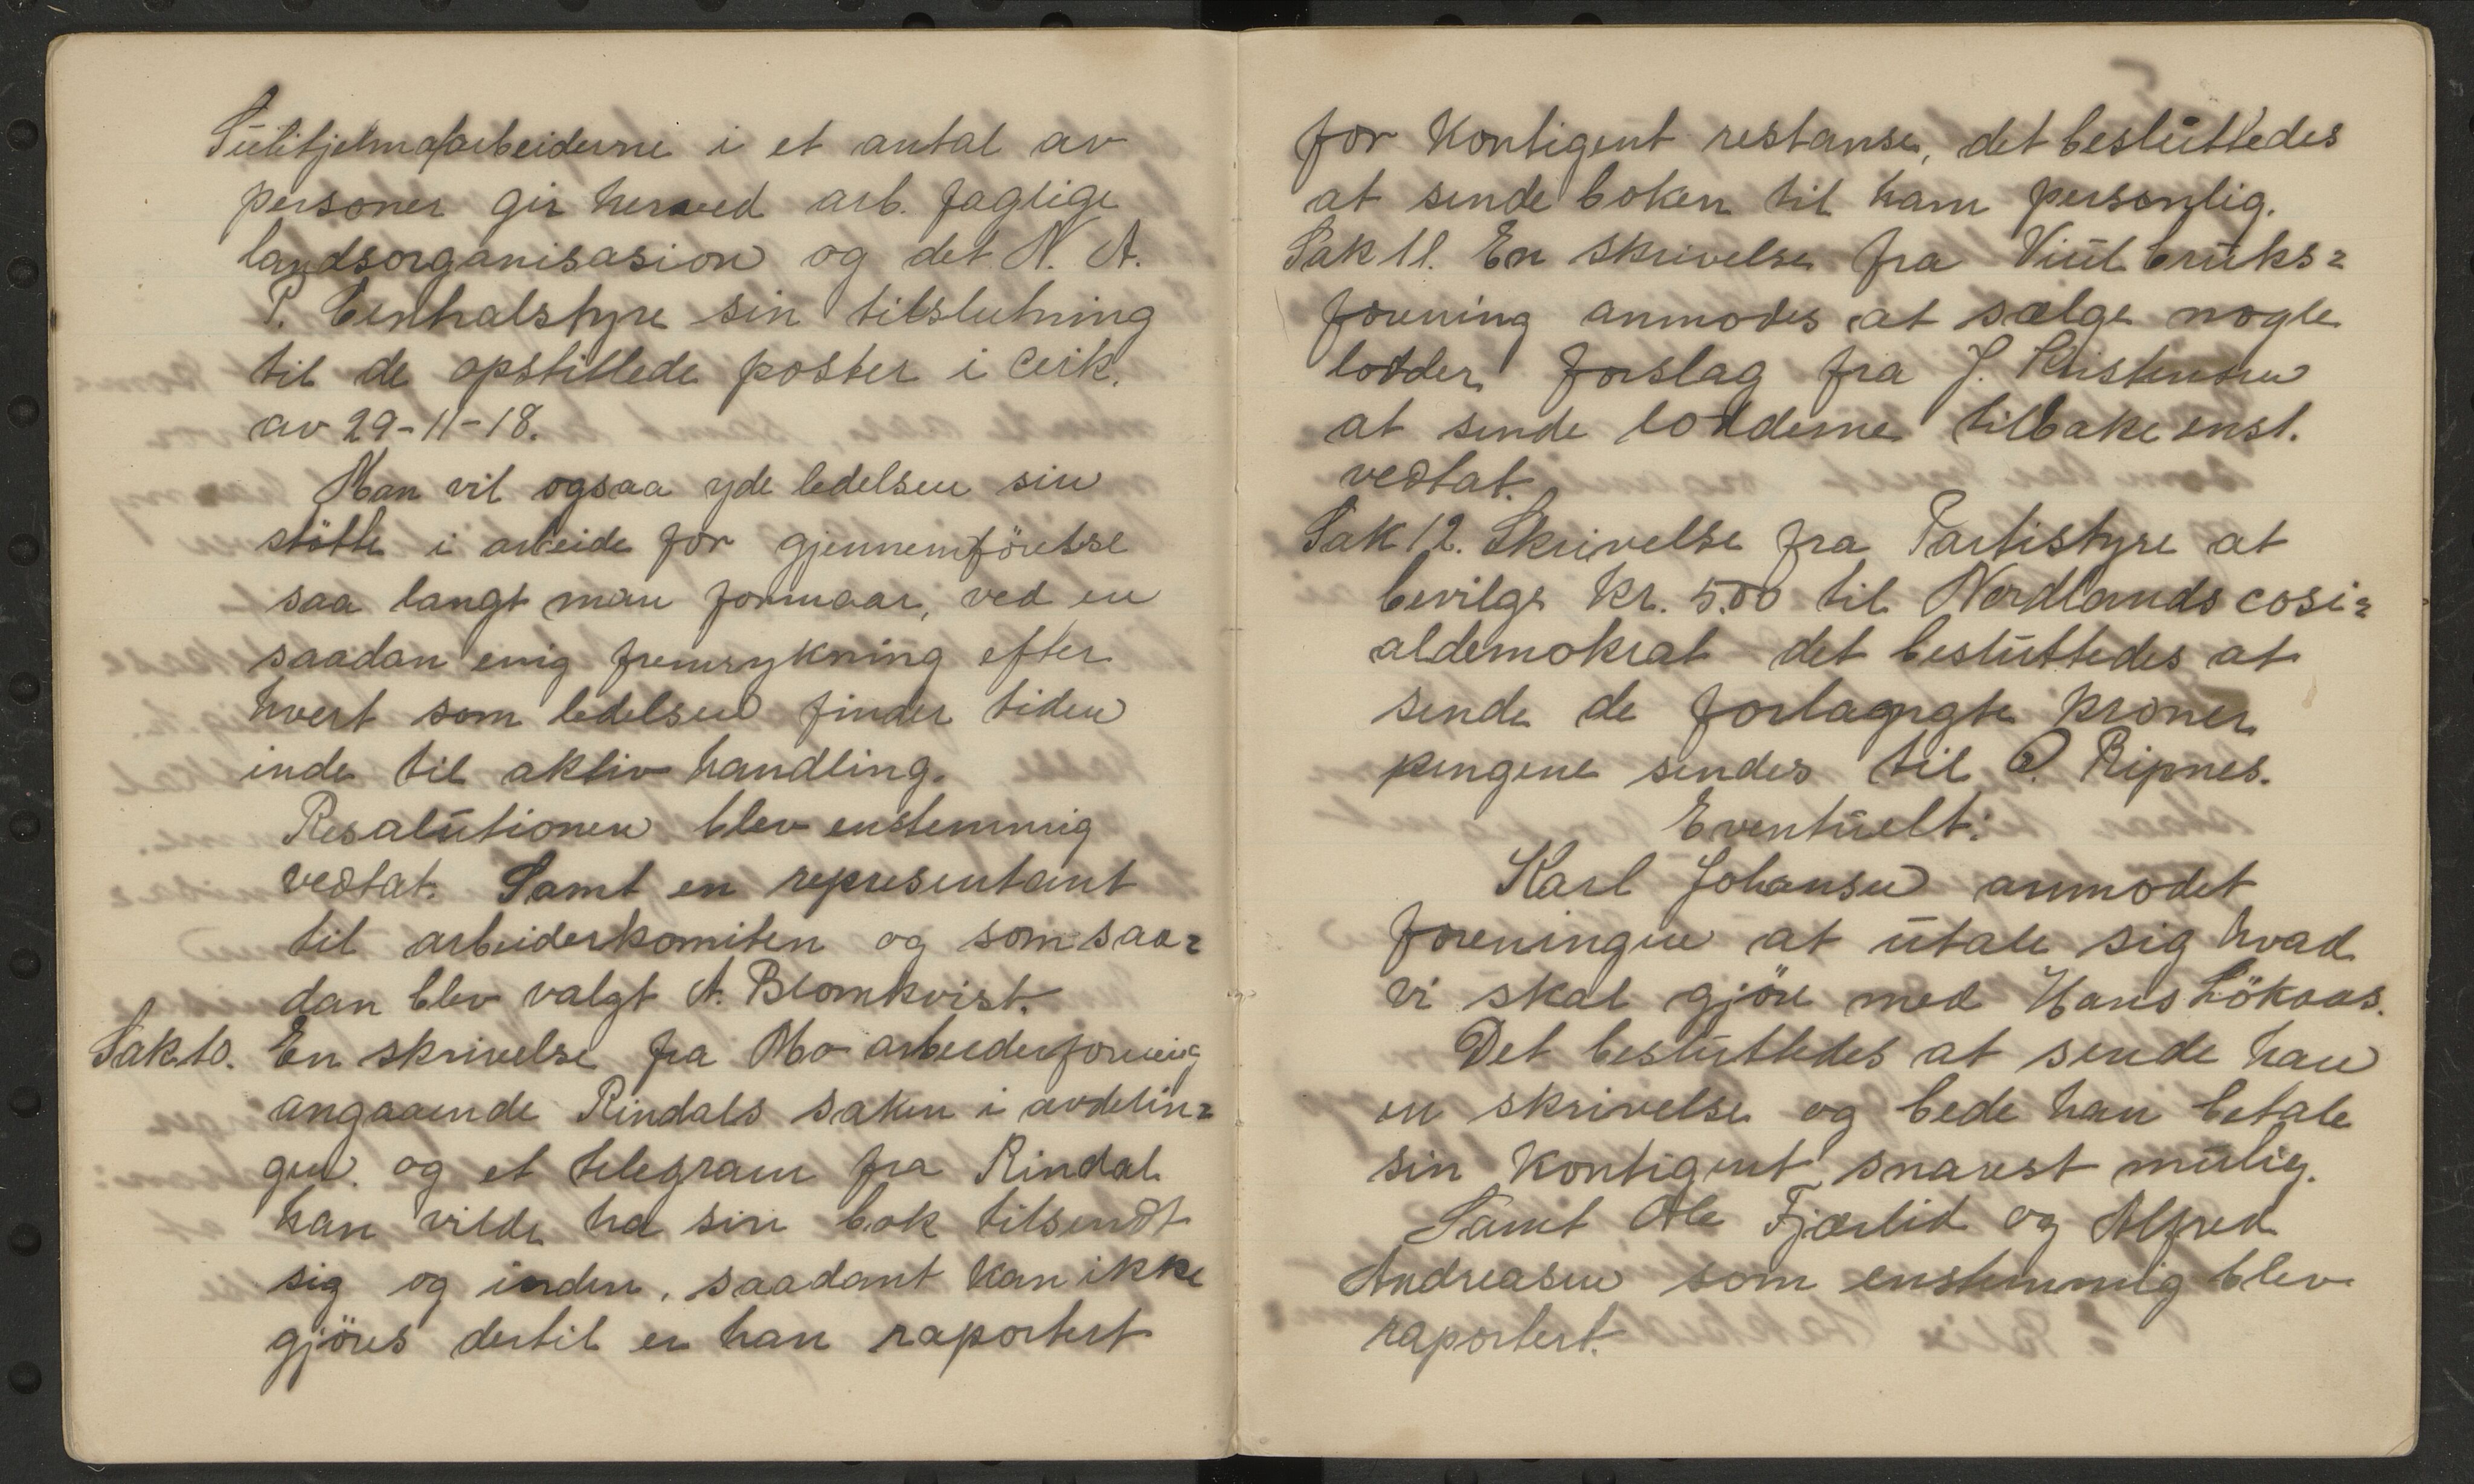 Sulitjelmaarbeiderne i et antal av
personer gir herved arb. faglige
landsorganisasion og det N. A.
P. Centralstyre sin tilslutning
til de opstillede poster i cirk.
av 29-11-18.
Man vil ogsaa yde ledelsen sin
støtte i arbeide for gjennemförelse
saa langt man formaar, ved en
saadan enig fremrykning efter
hvert som ledelsen finder tiden
inde til aktiv handling.
Resalutionen blev enstemmig
vedtat. Samt en representant
til arbeiderkomiten og som saa=
dan blev valgt A. Blomkvist.
Sak 10. En skrivelse fra Mo arbeiderforening
angaaende Rindals saken i avdelin=
gen. og et telegram fra Rindal
han vilde ha sin bok tilsendt
sig og inden, saadant kan ikke
gjöres dertil er han raportert
for Kontigent restanse, det besluttedes
at sende boken til ham personlig.
Sak 11. En skrivelse fra Viul bruks=
forening anmodes at sælge nogle
lodder, forslag fra J. Kristensen
at sende lodderne tilbake enst.
vedtat.
Sak 12. Skrivelse fra Partistyre at
bevilge Kr. 5.00 til Nordlands cosi=
aldemokrat det besluttedes at
sende de forlagngte kroner
pengene sendes til O. Ripnes.
Eventuelt:
Karl Johansen anmodet
foreningen at utale sig hvad
vi skal gjöre med Hans Lökaas.
Det besluttedes at sende han
en skrivelse og bede han betale
sin Kontigent snarest mulig.
Samt Ole Fjærlid og Alfred
Andreasen som enstemmig blev
raportert.